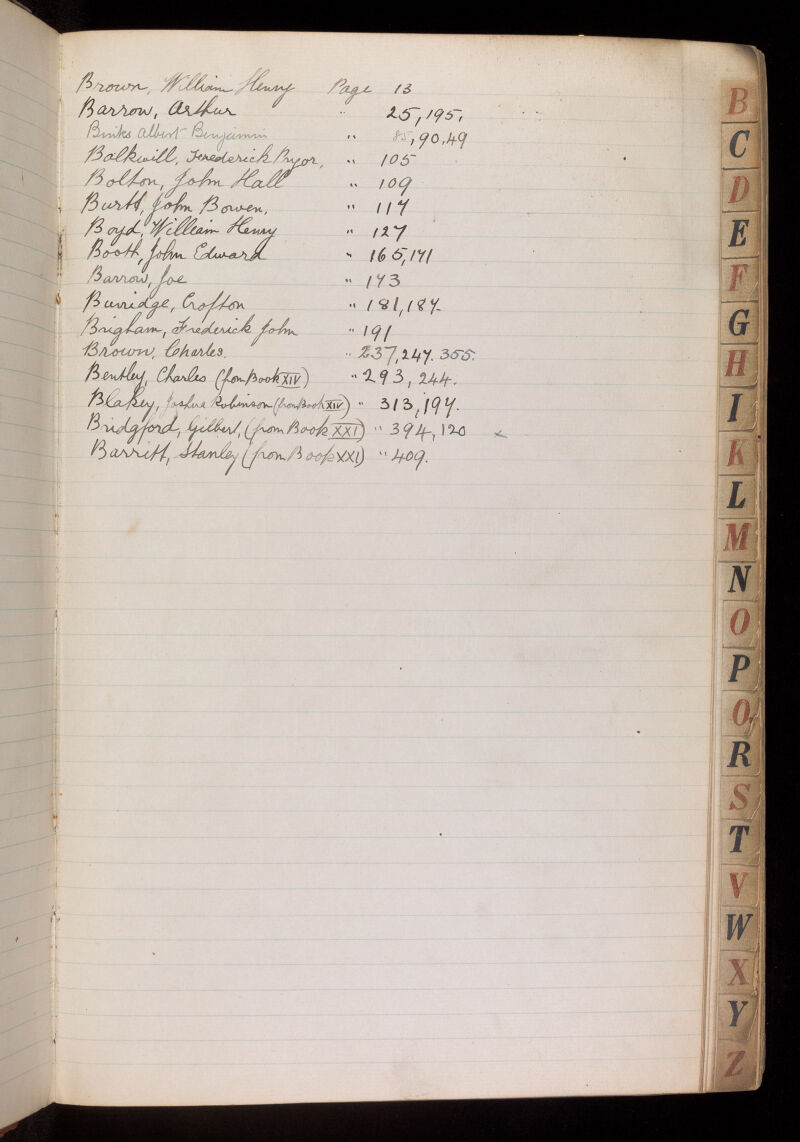 Brown, William Henry Page 13
Barrow, Arthur " 25, 195,
Binks Albert Benjamin " 85, 90, 49
Balkwill, Frederick Pryor, " 105
Bolton, John Hall " 109
Burtt, John Bowen, " 117
Boyd, William Henry " 127
Booth, John Edward " 165, 171
Barrow, Joe " 173
Burridge, Crofton " 181, 187
Brigham, Frederick John " 191
Brown, Charles. " 237, 247. 355.
Bentley, Charles (from Book XIV) " 293, 244.
Blakey, Joshua Robinson (from Book XIV) " 313, 197.
Bridgford, Gilbert, (from Book XXI) " 394, 120 x
Barritt, Stanley (from Book XXI) " 409.
B
C
D
E
F
G
H
I
K
L
M
N
O
P
Q
R
S
T
V
W
X
Y
Z